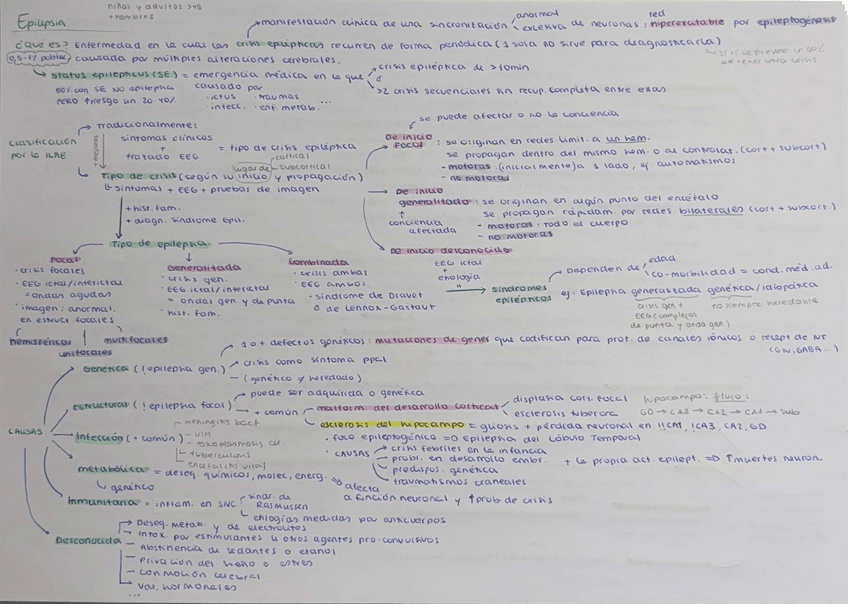 niños y adultos >45
+ hombres
Epilepsia
manifestación clínica de una sincronización anormal excesiva de neuronas: red hiperexcitable por epileptogénesis
¿Qué es? Enfermedad en la cual las crisis epilépticas recurren de forma periódica (1 sola no sirve para diagnosticarla)
0,5-1% poblac causada por múltiples alteraciones cerebrales.
status epilepticus (SE) = emergencia médica en la que
crisis epiléptica de >10min
o
>2 crisis secuenciales sin recup. completa entre ellas
50% con SE NO epilepsia
PERO ↑riesgo un 20-40%
causado por
- ictus - traumas
- infecc. - enf. metab. ...
Clasificación
por la ILAE
Tradicionalmente:
síntomas clínicos
+
tratado EEG
= tipo de crisis epiléptica
lugar de
cortical
subcortical
Tipo de crisis (según su inicio y propagación)
síntomas + EEG + pruebas de imagen
+ hist. fam.
+ diagn. síndrome epil.
se puede afectar o no la conciencia
De inicio
focal
: se originan en redes limit. a un hem.
se propagan dentro del mismo hem. o al contralat. (cort + subcort)
- motoras: (inicialmente) a 1 lado, ej: automatismos
- no motoras
De inicio
generalizado
: se originan en algún punto del encéfalo
se propagan rápidam. por redes bilaterales (cort + subcort.)
- motoras: todo el cuerpo
- no motoras
conciencia
afectada
De inicio desconocido
Tipo de epilepsia
Focal
· crisis focales
· EEG ictal/interictal
= ondas agudas
· imagen: anormal.
en estruct focales
hemisféricos
multifocales
unifocales
Generalizada
· crisis gen.
· EEG ictal/interictal
= ondas gen. y de punta
· hist. fam.
Combinada
· crisis ambas
· EEG ambos
· síndrome de Dravet
o de Lennox-Gastaut
EEG ictal
+
etiología
=
síndromes
epilépticos
Dependen de
edad
co-morbilidad = cond. méd. ad.
ej: Epilepsia generalizada genética/idiopática
crisis gen +
EEG (complejos
de punta y onda gen)
no siempre heredable
CAUSAS
Genética (! epilepsia gen.)
1 o + defectos genéticos: mutaciones de genes que codifican para prot. de canales iónicos o recept de NT
(Glu, GABA...)
crisis como síntoma ppal
(genético ≠ heredado)
Estructural (! epilepsia focal)
puede ser adquirida o genética
+ común
malform. del desarrollo cortical
displasia cort. focal
esclerosis tuberosa
esclerosis del hipocampo = gliosis + pérdida neuronal en !!CA1, !CA3, CA2, GD
hipocampo: flujo:
GD → CA3 → CA2 → CA1 → sub
· foco epileptogénico => epilepsia del lóbulo temporal
· CAUSAS
crisis febriles en la infancia
probl. en desarrollo embr.
predispos. genética
traumatismos craneales
+ la propia act. epilept. => ↑ muertes neuron.
infección (+ común)
- meningitis bact
- VIH
- toxoplasmosis cer
- tuberculosis
- encefalitis viral
metabólica = deseq. químicos, molec, energ.
genético
=> afecta
a función neuronal y ↑ prob de crisis
Inmunitaria = inflam. en SNC
sínd. de
Rasmussen
etiologías mediadas por anticuerpos
Desconocida
Deseq. metab. y de electrolitos
Intox. por estimulantes u otros agentes pro-convulsivos
Abstinencia de sedantes o etanol
Privación del sueño o estrés
Conmoción cerebral
Var. hormonales
...